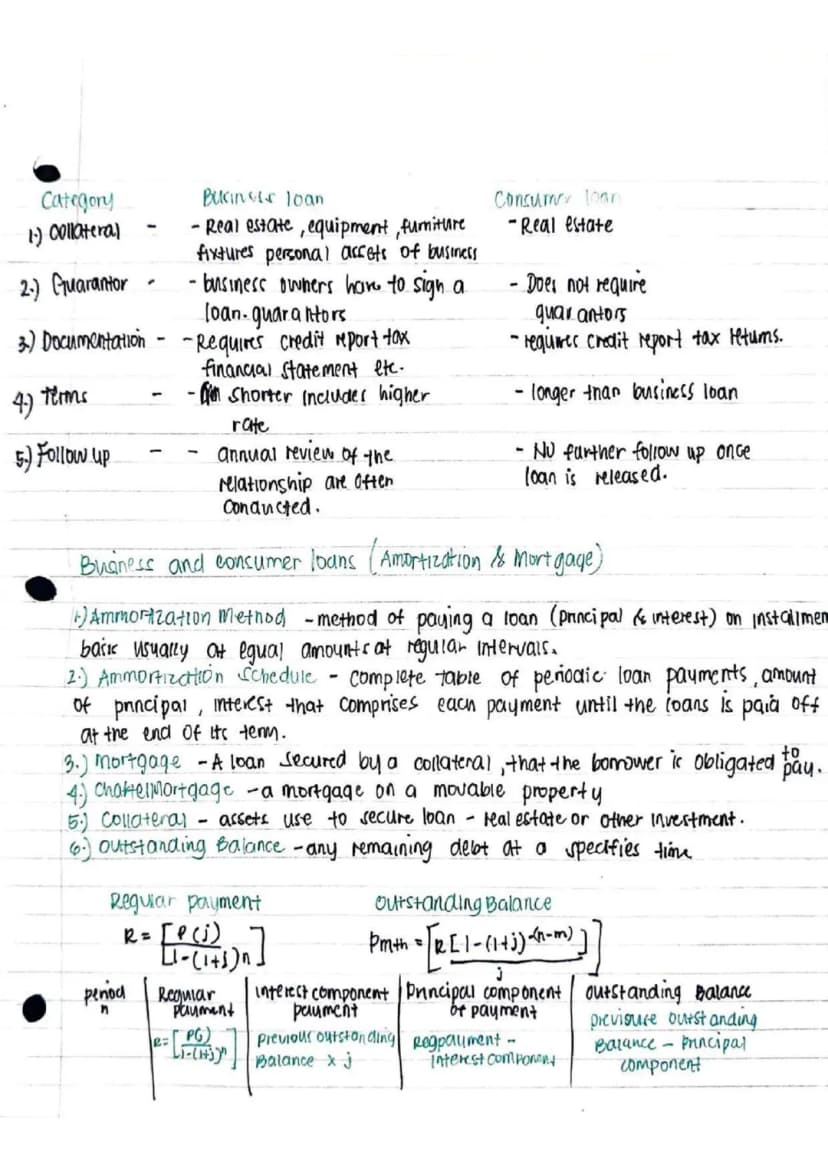 Category Business loan Consumer loan
1.) Collateral - - Real estate, equipment, furniture - Real estate
fixtures personal assets of business
2.) Guarantor - - business owners have to sign a - Does not require
loan-guarantors guarantors
3.) Documentation - - Requires credit report tax - requires credit report tax returns.
financial statement etc.
4.) Terms - - shorter includes higher - longer than business loan
rate
5.) Follow up - - annual review of the - NO further follow up once
relationship are often loan is released.
conducted.
Business and consumer loans (Amortization & Mortgage)
1.) Ammortization Method - method of paying a loan (principal & interest) on installmen
basis usually at equal amounts at regular intervals.
2.) Ammortization Schedule - complete table of periodic loan payments, amount
of principal, interest that comprises each payment until the loans is paid off
at the end of its term.
3.) Mortgage - A loan secured by a collateral, that the borrower is obligated to pay.
4.) Chattel Mortgage - a mortgage on a movable property
5.) Collateral - assets use to secure loan - real estate or other investment.
6.) Outstanding Balance - any remaining debt at a specifies time
Regular payment Outstanding Balance
R = [P(j) / 1-(1+j)n] Pmth = [R[1-(1+j)-(n-m)] / j]
period Regular interest component Principal component Outstanding Balance
n payment payment of payment previoure outstanding
R=[P(j) / 1-(1+j)n] previous outstanding Regpayment - Balance - Principal
Balance x j interest component component